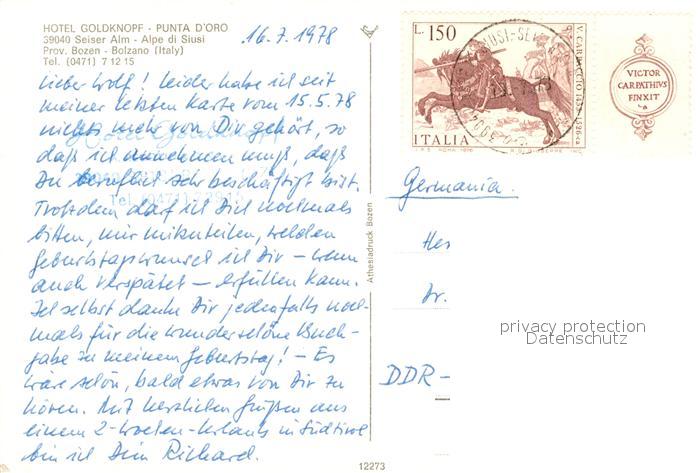 HOTEL GOLDKNOPF - PUNTA D'ORO
39040 Seiser Alm - Alpe di Siusi
Prov. Bozen - Bolzano (Italy)
Tel. (0471) 7 12 15
16.7.1978
Lieber Wolf! Leider habe ich seit
meiner letzten Karte vom 15.5.78
nichts mehr von Dir gehört, so
daß ich annehmen muß, daß
Du beruflich sehr beschäftigt bist.
Trotzdem darf ich Dich nochmals
bitten, mir mitzuteilen, welchen
Geburtstagswunsch ich Dir – wenn
auch verspätet – erfüllen kann.
Ich selbst danke Dir jedenfalls noch-
mals für die wunderschöne Buch-
gabe zu meinem Geburtstag! – Es
wäre schön, bald etwas von Dir zu
hören. Mit herzlichen Grüßen aus
einem 2-Wochen-Urlaub in Südtirol
bin ich Dein Richard.
Athesiadruck Bozen
12273
L. 150
V. CARPACCIO
ITALIA
VICTOR
CARPATHIVS
FINXIT
Germania.
Her
Dr.
DDR-
privacy protection
Datenschutz